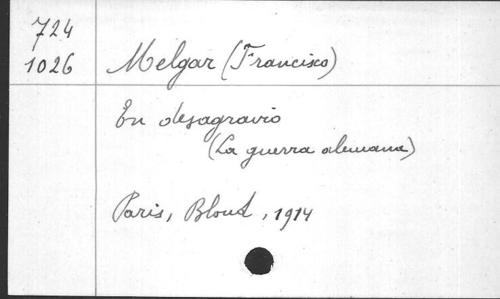 724
1026
Melgar (Francisco)
En desagravio
(La guerra alemana)
Paris, Bloud, 1914